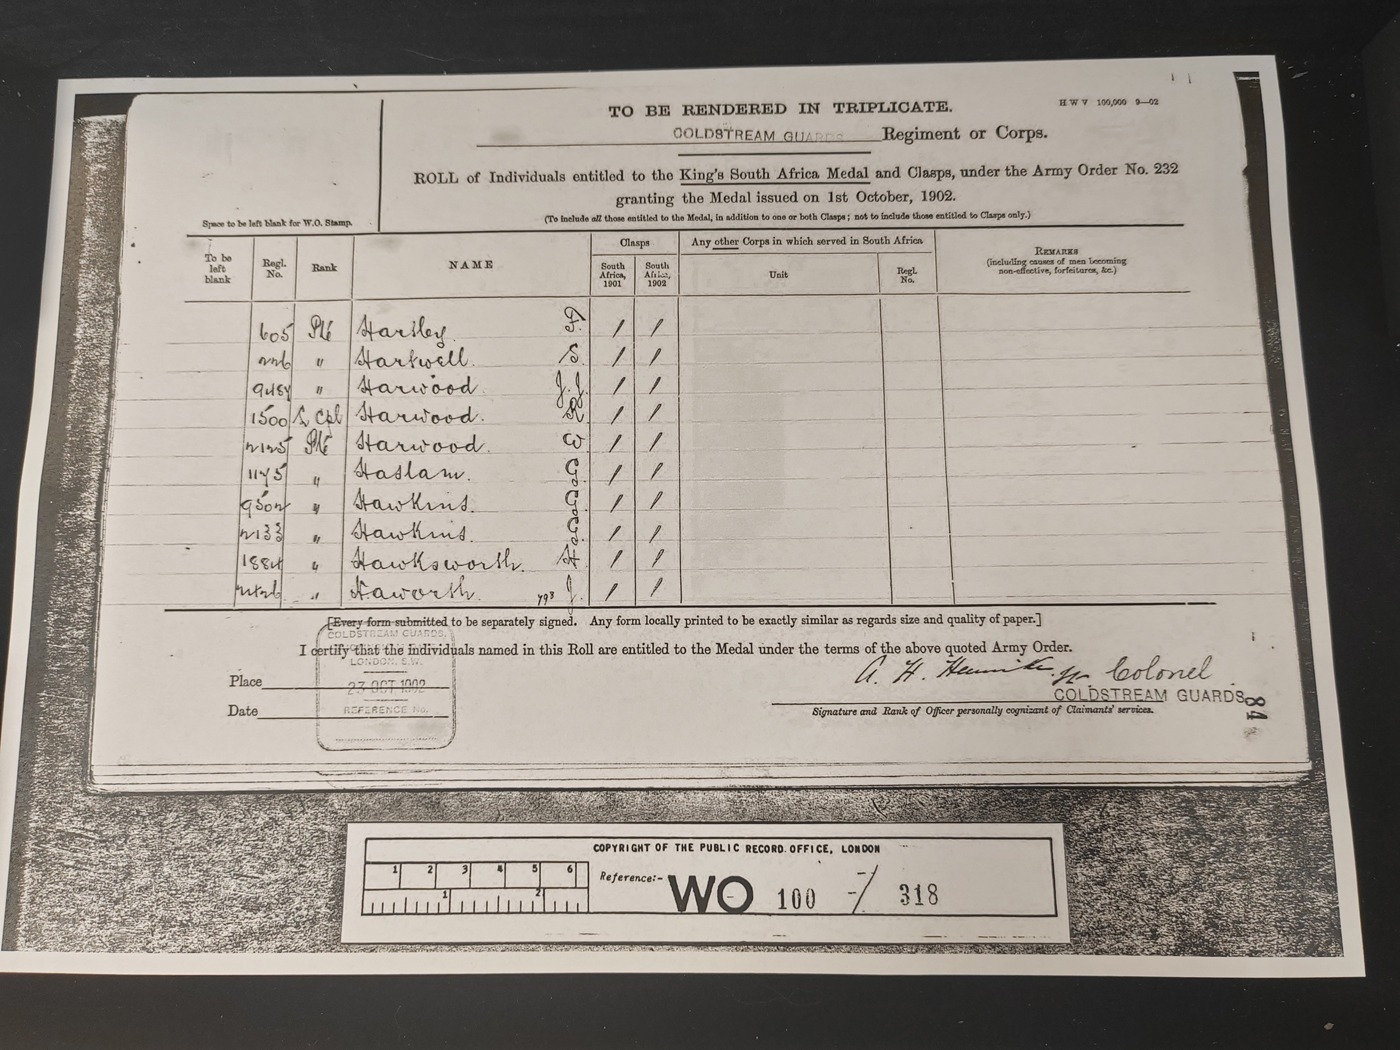 TO BE RENDERED IN TRIPLICATE.
H W V 100,000 9—02
COLDSTREAM GUARDS Regiment or Corps.
ROLL of Individuals entitled to the King's South Africa Medal and Clasps, under the Army Order No. 232
granting the Medal issued on 1st October, 1902.
Space to be left blank for W.O. Stamp.
(To include all those entitled to the Medal, in addition to one or both Clasps; not to include those entitled to Clasps only.)
To be left blank
Regl. No.
Rank
NAME
Clasps
South Africa, 1901
South Africa, 1902
Any other Corps in which served in South Africa
Unit
Regl. No.
REMARKS
(including causes of men becoming
non-effective, forfeitures, &c.)
605 Pte Hartley / /
" Hartwell. S. / /
" Harwood. J.J. / /
1500 L Cpl Harwood. R. / /
2125 Pte Harwood. W / /
1175 " Haslam. G. / /
9502 " Hawkins. G. / /
2133 " Hawkins. G. / /
1884 " Hawksworth. H. / /
" Haworth. J. / /
[Every form submitted to be separately signed. Any form locally printed to be exactly similar as regards size and quality of paper.]
COLDSTREAM GUARDS,
I certify that the individuals named in this Roll are entitled to the Medal under the terms of the above quoted Army Order.
LONDON. S.W.
A. H. Colonel
Place
23 OCT 1902
COLDSTREAM GUARDS
Date
REFERENCE No.
Signature and Rank of Officer personally cognizant of Claimants' services.
84
COPYRIGHT OF THE PUBLIC RECORD OFFICE, LONDON
1 2 3 4 5 6
1 2
Reference:- WO 100 / 318